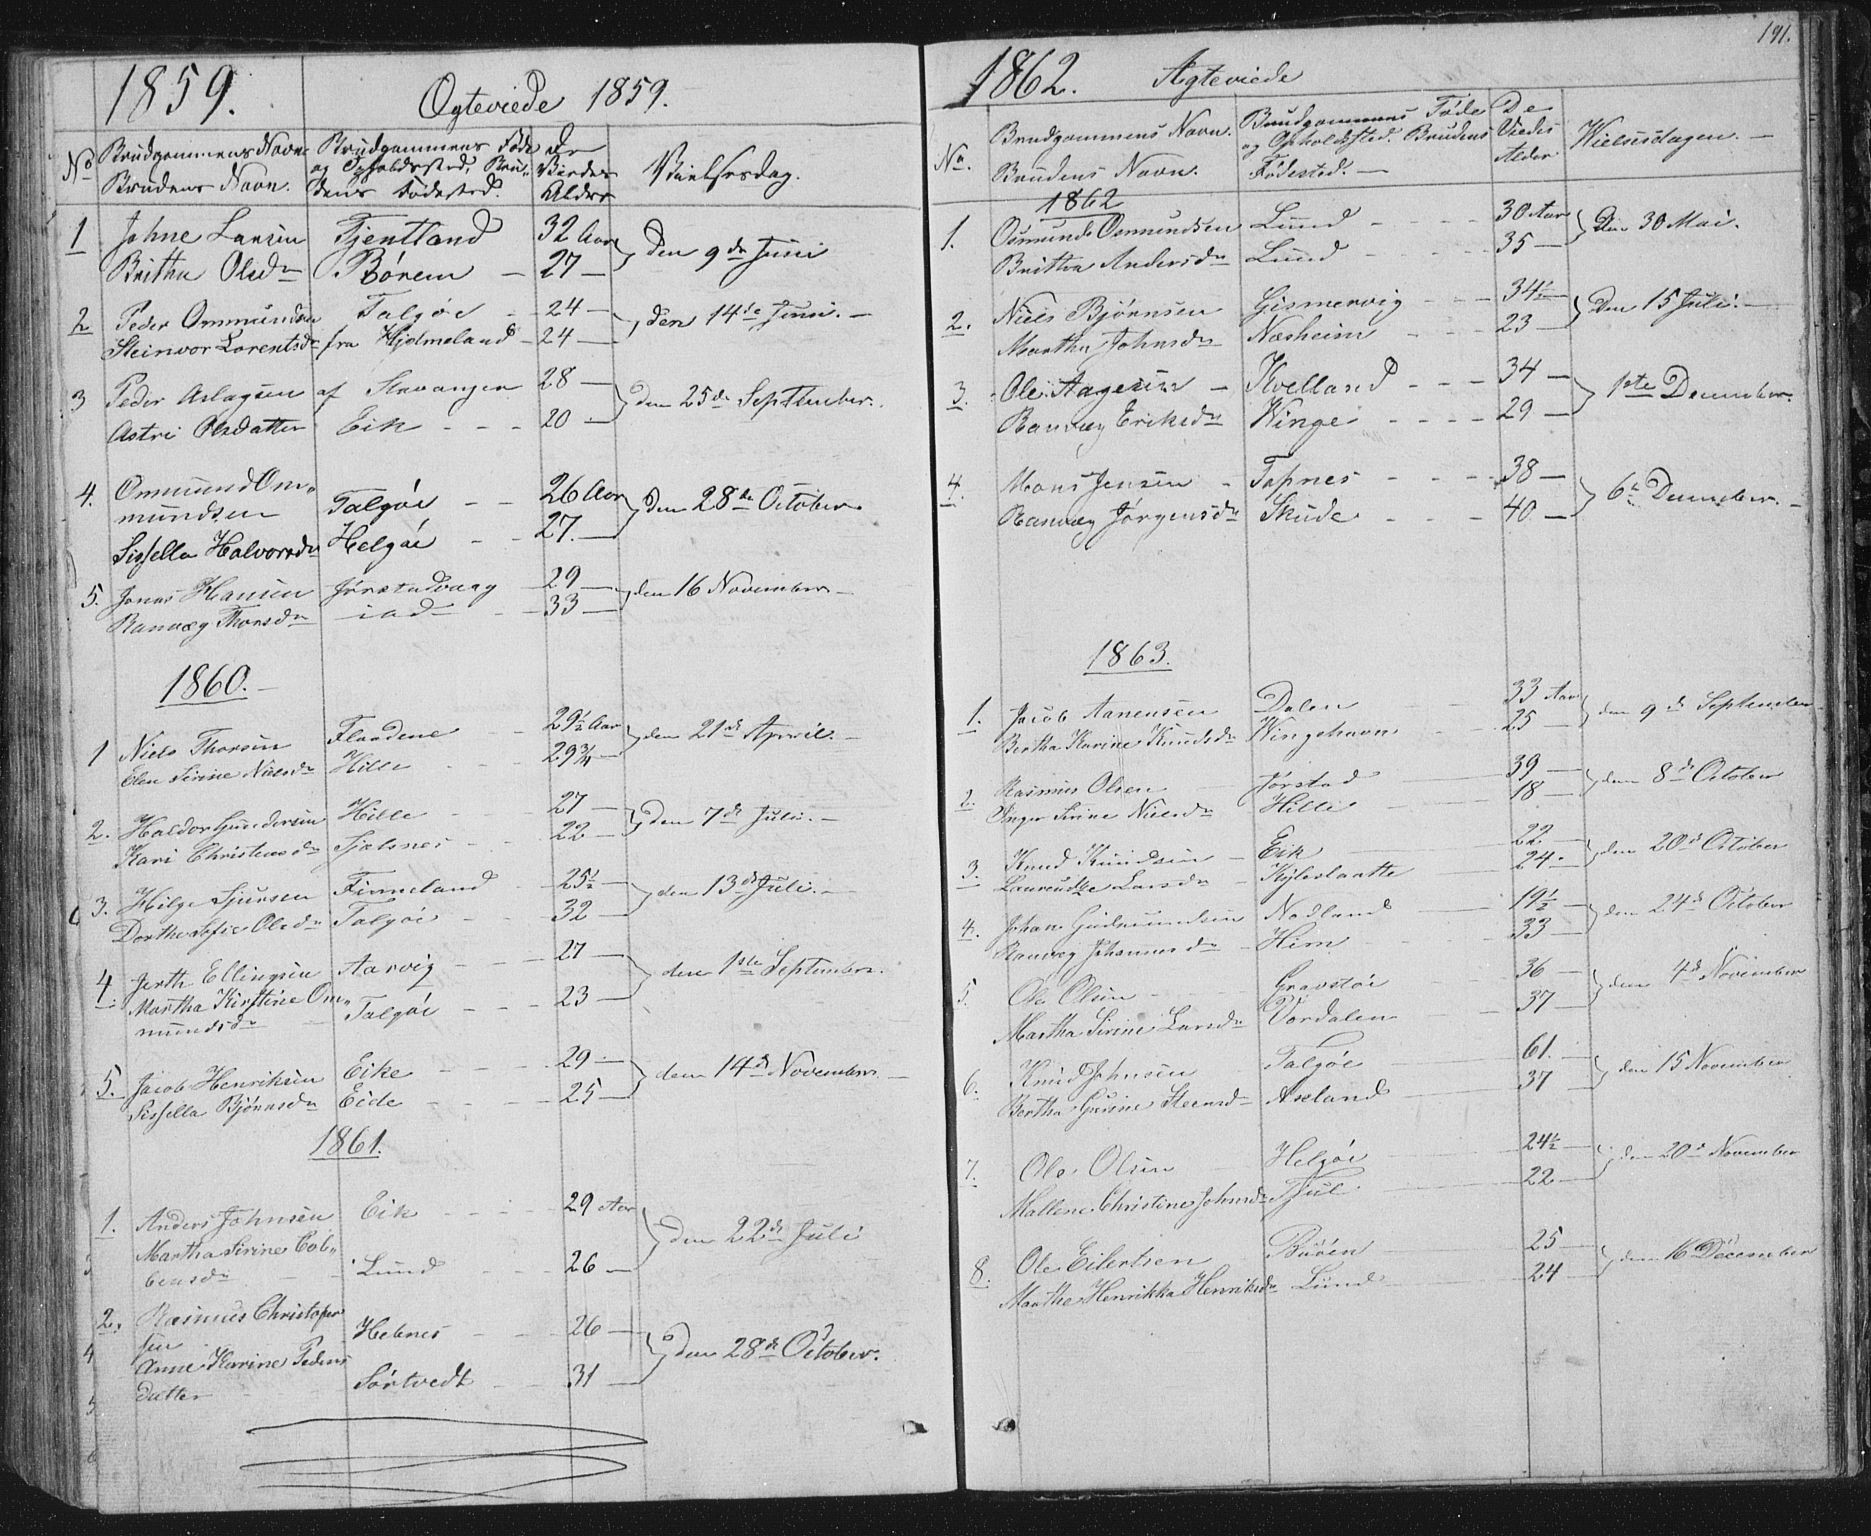 1859.
Ogteviede 1859.
No Brudgommens Navn. Brudgommens Føde De
og Opholdssted, Bru- Viedes Vielsesdag.
Brudens Navn. dens Fødested. Alder
1 Johne Larsen Fjentland 32 Aar den 9de Juni
Britha Olsdr Børem 27
2 Peder Ommundsen Talgøe 24 den 14de Juni.
Steinvor Lorentsdr fra Hjelmeland 24
3 Peder Aslagsen af Stavanger 28 den 25de September.
Astri Olsdatter Eik 20
4. Ommund Om„ 26 Aar
mundsen Talgøe den 28de October.
Sissella Halvorsdr Helgøe 27.
5. Jonas Hansen Jørstadvaag 29 den 16 November
Ranvæg Thorsdr 33
1860.
1 Niels Thorsen Flaadene 29½ Aar den 21de April.
Elen Serine Nielsdr Hille 29¾
2. Haldor Gundersen Hille 27 den 7de Juli.
Kari Christensdr Sjælsnes 22
3. Helge Sjursen Finneland 25½ den 13de Juli.
Dorthe Sofie Olsdr Talgøe 32
4. Jerth Ellingsen Aarvig 27 den 1ste September.
Martha Kirstine Om„ 23
mundsdr Talgøe
5. Jacob Henriksen Eike 29 den 14de November.
Sissella Bjørnsdr Eide 25
1861.
1. Anders Johnsen Eik 29 Aar den 22de Juli
Martha Serine Col„
bensdr Lund 26
2. Rasmus Christofer
sen Hebnes 26 den 28de October.
Anne Karine Peders
datter Sørtvedt 31
191.
1862. Agteviede
No. Brudgommens Navn. Brudgommens Føde De
og Opholdssted. Brudens Viedes Vielsesdagen.
Brudens Navn. Fødested. Alder
1862
1. Osmund Osmundsen Lund 30 Aar Den 30 Mai.
Brittha Andersdr Lund 35
2. Niels Bjørnsen Gismervig 34½ Den 15 Juli.
Martha Johnsdr Næsheim 23
3. Ole Aagesen Kvelland 34 1ste December.
Ranvæg Eriksdr Winge 29
4. Mons Jensen Topnes 38 6te December.
Ranvæg Jørgensdr Skude 40
1863.
1. Jacob Aanensen Dalen 33 Aar den 9de September
Bertha Karine Knudsdr Wingehavn 25
2. Rasmus Olsen Jørstad 39 den 8de October
Inger Serine Nielsdr Hille 18
3. Knud Knudsen Eik 22 den 20de October
Laurendze Larsdr Kyleslaatte 24
4. Johan Gudmundsen Nodland 19½ den 24de October
Ranvæg Johannesdr Him 33
5. Ole Olsen Gravstøe 36 den 4de November
Martha Serine Larsdr Vordalen 37
6. Knud Johnsen Talgøe 61. den 15 November
Bertha Gurine Steensdr Axeland 37
7. Ole Olsen Helgøe 24½ den 20de November
Mallene Christine Johnsdr Tjul 22
8. Ole Eilertsen Buøen 25 den 16 December
Marthe Henrikka Henriksdr Lund 24